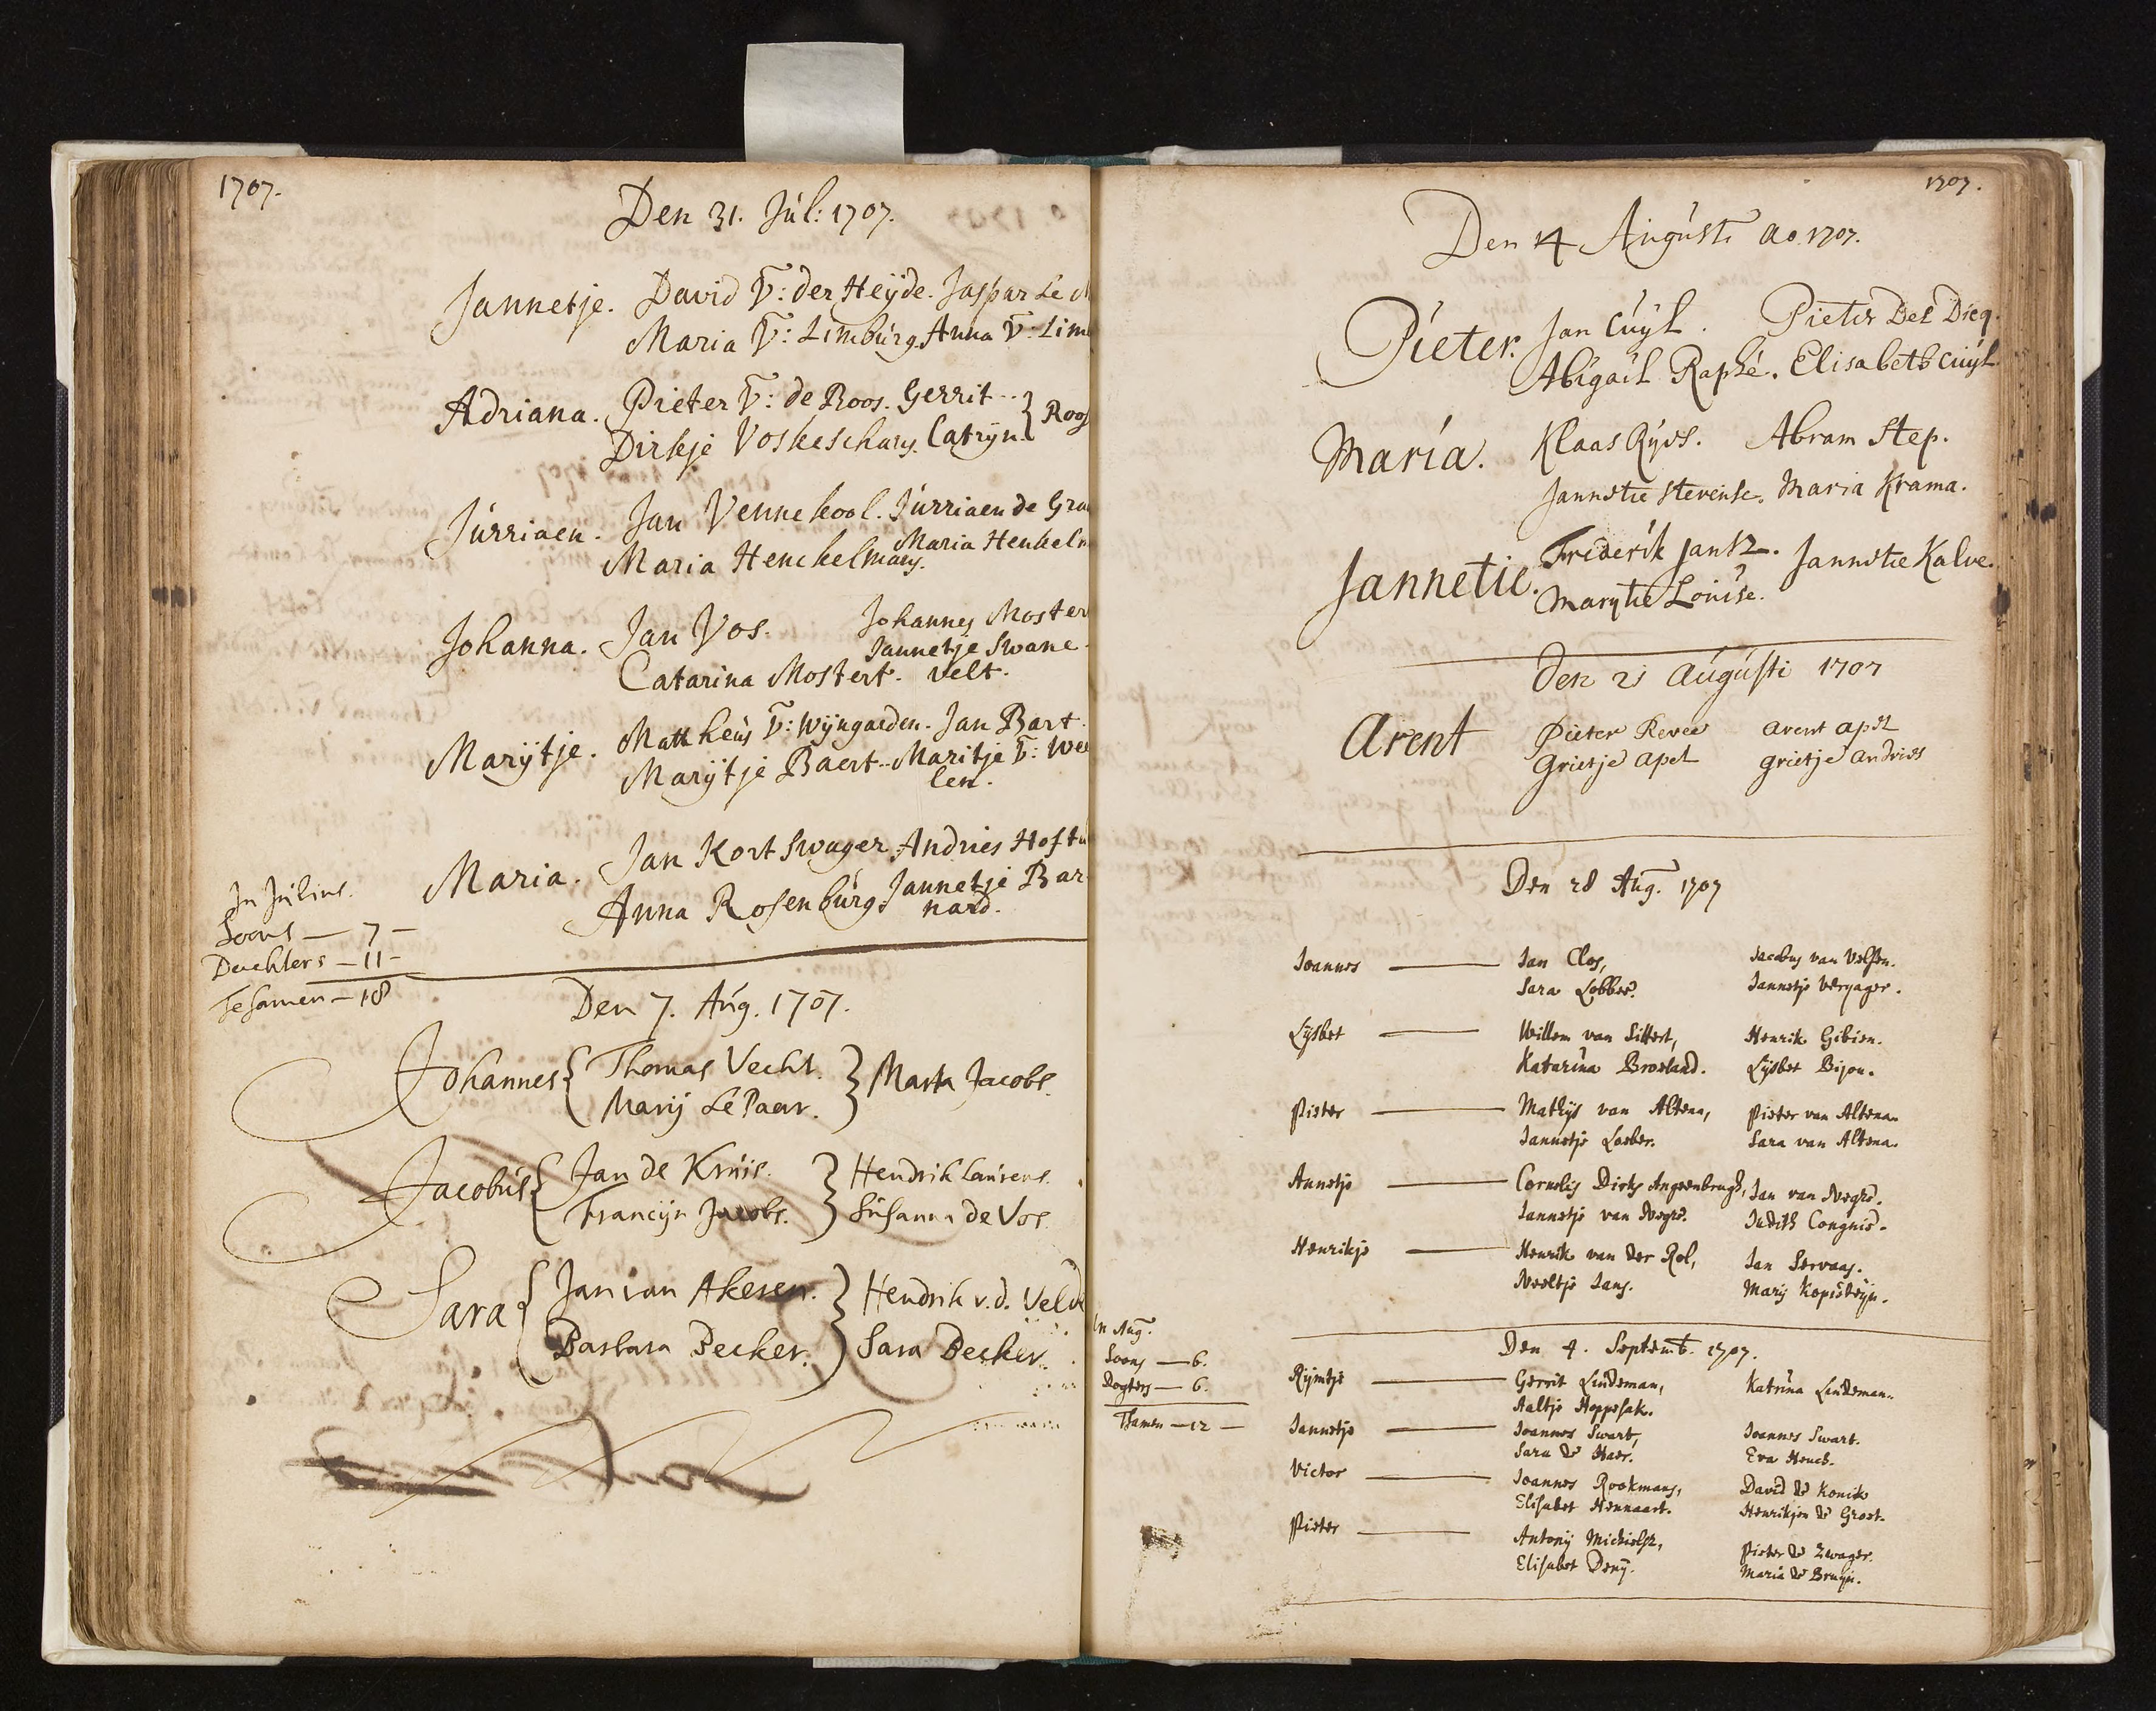 1707.
Den 31. Júl: 1707.
Jannetje. David V: der Heÿde. Jaspar Le
Maria V: Limbúrg. Anna V: Lim
Adriana. Pieter V: de Roos. Gerrit
Dirkje Catrÿn. } Roos
Júrriaen. Jan Vennekool. Júrriaen de Gra
Maria Henckelmans. Maria Henkelm
Johanna. Jan Vos. Johannes Moster
Jannetje Swane-
Catarina Mostert. velt.
Marÿtje. Mattheús V: Wÿngaerden. Jan Bart
Marÿtje Baert. Maritje V: Wee
len.
Maria. Jan Kortswager. Andries Hoft
Anna Rosenbúrg. Jannetje Bar-
nard.
In Július.
Soons — 7 —
Dochters — 11 —
Tesamen — 18
Den 7. Aúg. 1707.
Johannes { Thomas Vecht. } Marta Jacobs.
Marij Le Paar.
Jacobús { Jan de Krúis. } Hendrik Laúrens.
Francijn Jacobs. Súsanna de Vos.
Sara { Jan van Akeren. } Hendrik v.d. Veld
Barbara Becker. Sara Becker.
1707.
Den 14 Aúgústi ao. 1707.
Pieter. Jan Cúÿl. Pieter Del
Abigaíl Raphé. Elisabeth Cúÿl
María. Klaas Rÿds. Abram Step.
Jannetie Stevense. Maria Krama.
Jannetie. Frederik Jansz. Jannetie Kalve.
Marytie Louise.
Den 21 aúgústi 1707
Arent Pieter Revee arent apel
Grietje apel grietje andries
Den 28 Aúg. 1707
Joannes — Jan Clos, Jacobus van Velsen.
Sara Lobber. Jannetje Verjager.
Lijsbet — Willem van Sittert, Henrik Gibien.
Katarina Broeland. Lijsbet Bijou.
Pieter — Mathijs van Altena, Pieter van Altena.
Jannetje Loeber. Sara van Altena.
Annetje — Cornelis Dirks Angeenbrugh, Jan van Negre.
Jannetje van Negre. Judith Congnie.
Henrikje — Henrik van der Rol, Jan Servaas.
Neeltje Jans. Marij Kopistrijn.
In Aug.
Soons — 6.
Dogters — 6.
Tsamen — 12 —
Den 4. Septemb. 1707.
Rijmtje — Gerrit Lindeman, Katrina Lindeman.
Aaltje Hoppesak.
Jannetje — Joannes Swart, Joannes Swart.
Sara de Haer. Eva Heuch.
Victor — Joannes Rookmans, David de Konik
Elisabet Hennaart. Henrikjen de Groot.
Pieter — Antonij Michielsz, Pieter de Zwager.
Elisabet Denÿ. Maria de Bruijn.